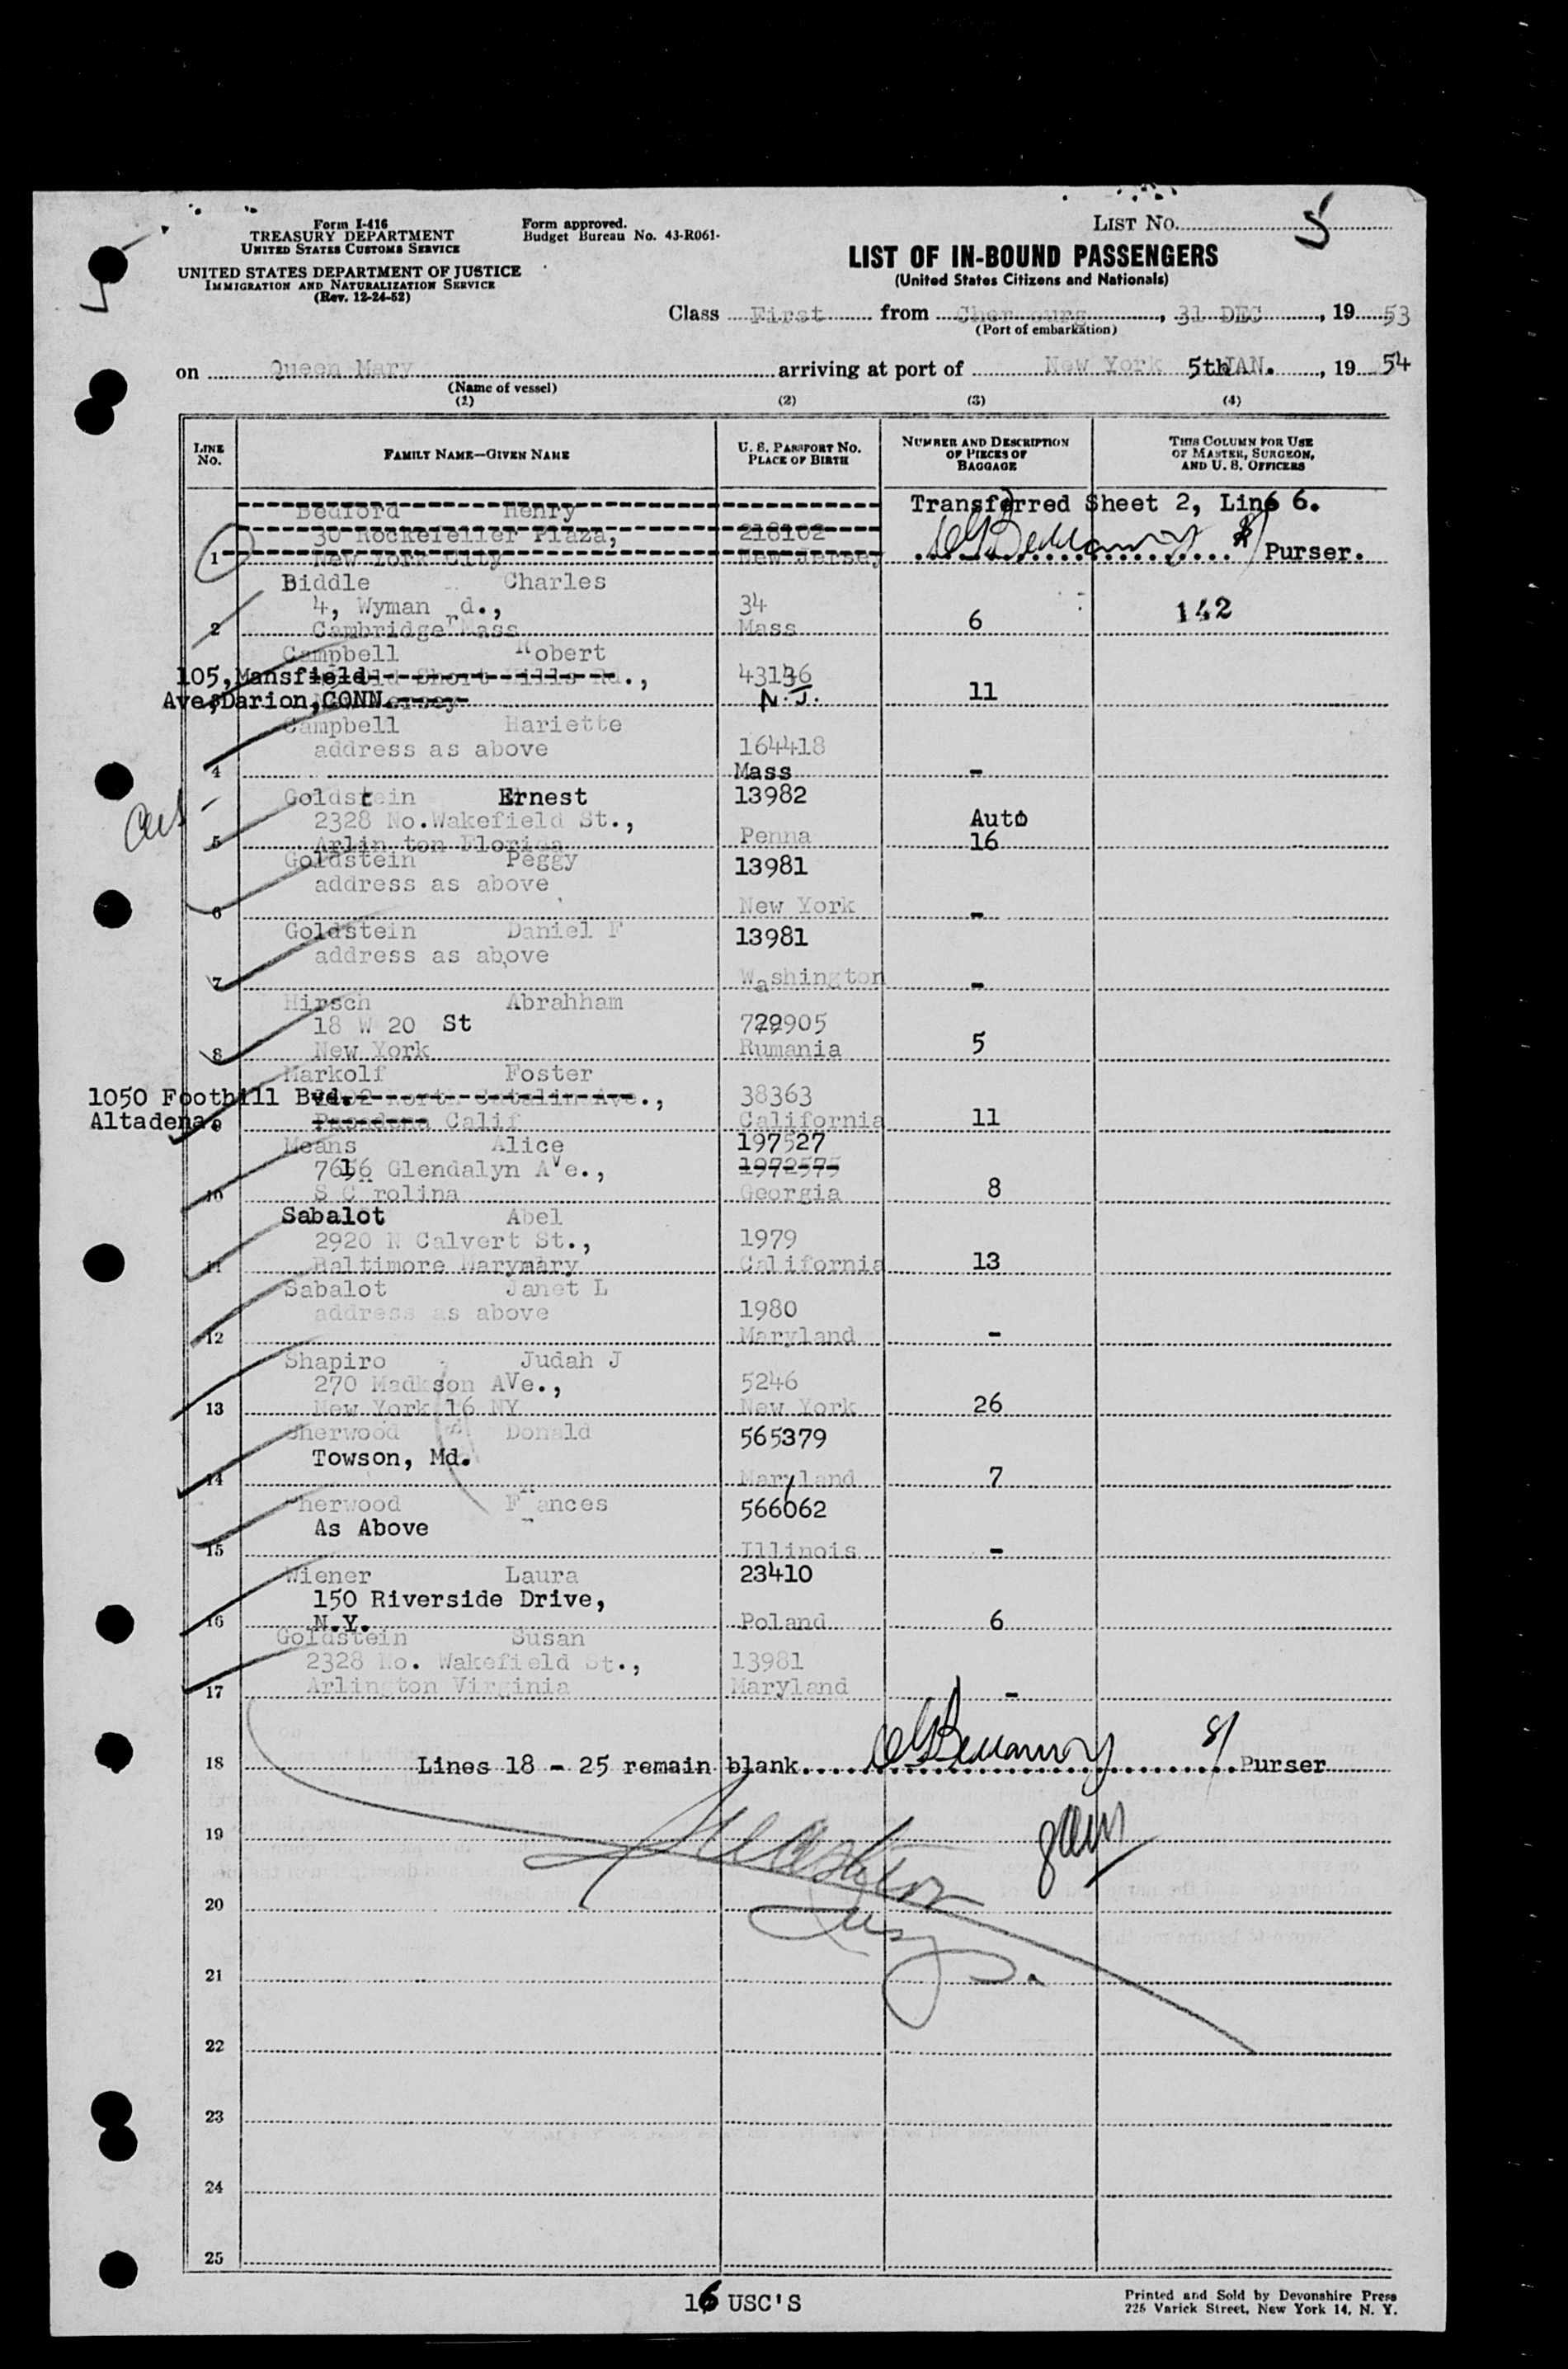 Form I-416
TREASURY DEPARTMENT
UNITED STATES CUSTOMS SERVICE
UNITED STATES DEPARTMENT OF JUSTICE
IMMIGRATION AND NATURALIZATION SERVICE
(Rev. 12-24-52)
Form approved.
Budget Bureau No. 43-R061.
LIST NO. 5
LIST OF IN-BOUND PASSENGERS
(United States Citizens and Nationals)
Class First from Cherbourg, 31 DEC, 19 53
(Port of embarkation)
on Queen Mary arriving at port of New York 5th JAN., 19 54
(Name of vessel)
(1) (2) (3) (4)
LINE No. FAMILY NAME—GIVEN NAME U. S. PASSPORT NO. PLACE OF BIRTH NUMBER AND DESCRIPTION OF PIECES OF BAGGAGE THIS COLUMN FOR USE OF MASTER, SURGEON, AND U. S. OFFICERS
Bedford Henry Transferred Sheet 2, Line 6.
30 Rockefeller Plaza, 218102
1 New York City New Jersey Purser.
Biddle Charles
4, Wyman rd., 34 142
2 Cambridge Mass Mass 6
Campbell Robert
105, Mansfield Short Hills Rd., 43136
3 Ave, Darion, CONN. N.J. 11
Campbell Hariette
address as above 164418
4 Mass -
Goldstein Ernest 13982
2328 No. Wakefield St., Auto
5 Arlin ton Florida Penna 16
Goldstein Peggy 13981
address as above
6 New York -
Goldstein Daniel F 13981
address as above
7 Washington -
Hirsch Abrahham
18 W 20 St 729905
8 New York Rumania 5
Markolf Foster
1050 Foothill Bvd. North Catalina Ave., 38363
Altadena. 9 Pasadena Calif California 11
Means Alice 197527
7656 Glendalyn Ave., 1972575
10 S C rolina Georgia 8
Sabalot Abel
2920 N Calvert St., 1979
11 Baltimore Marymary California 13
Sabalot Janet L
address as above 1980
12 Maryland -
Shapiro Judah J
270 Madkson AVe., 5246
13 New York 16 NY New York 26
Sherwood Donald 565379
Towson, Md.
14 Maryland 7
Sherwood Frances 566062
As Above
15 Illinois -
Wiener Laura 23410
150 Riverside Drive,
16 N.Y. Poland 6
Goldstein Susan
2328 No. Wakefield St., 13981
17 Arlington Virginia Maryland -
18 Lines 18 - 25 remain blank Purser
19
20
21
22
23
24
25
16 USC'S
Printed and Sold by Devonshire Press
225 Varick Street, New York 14, N. Y.